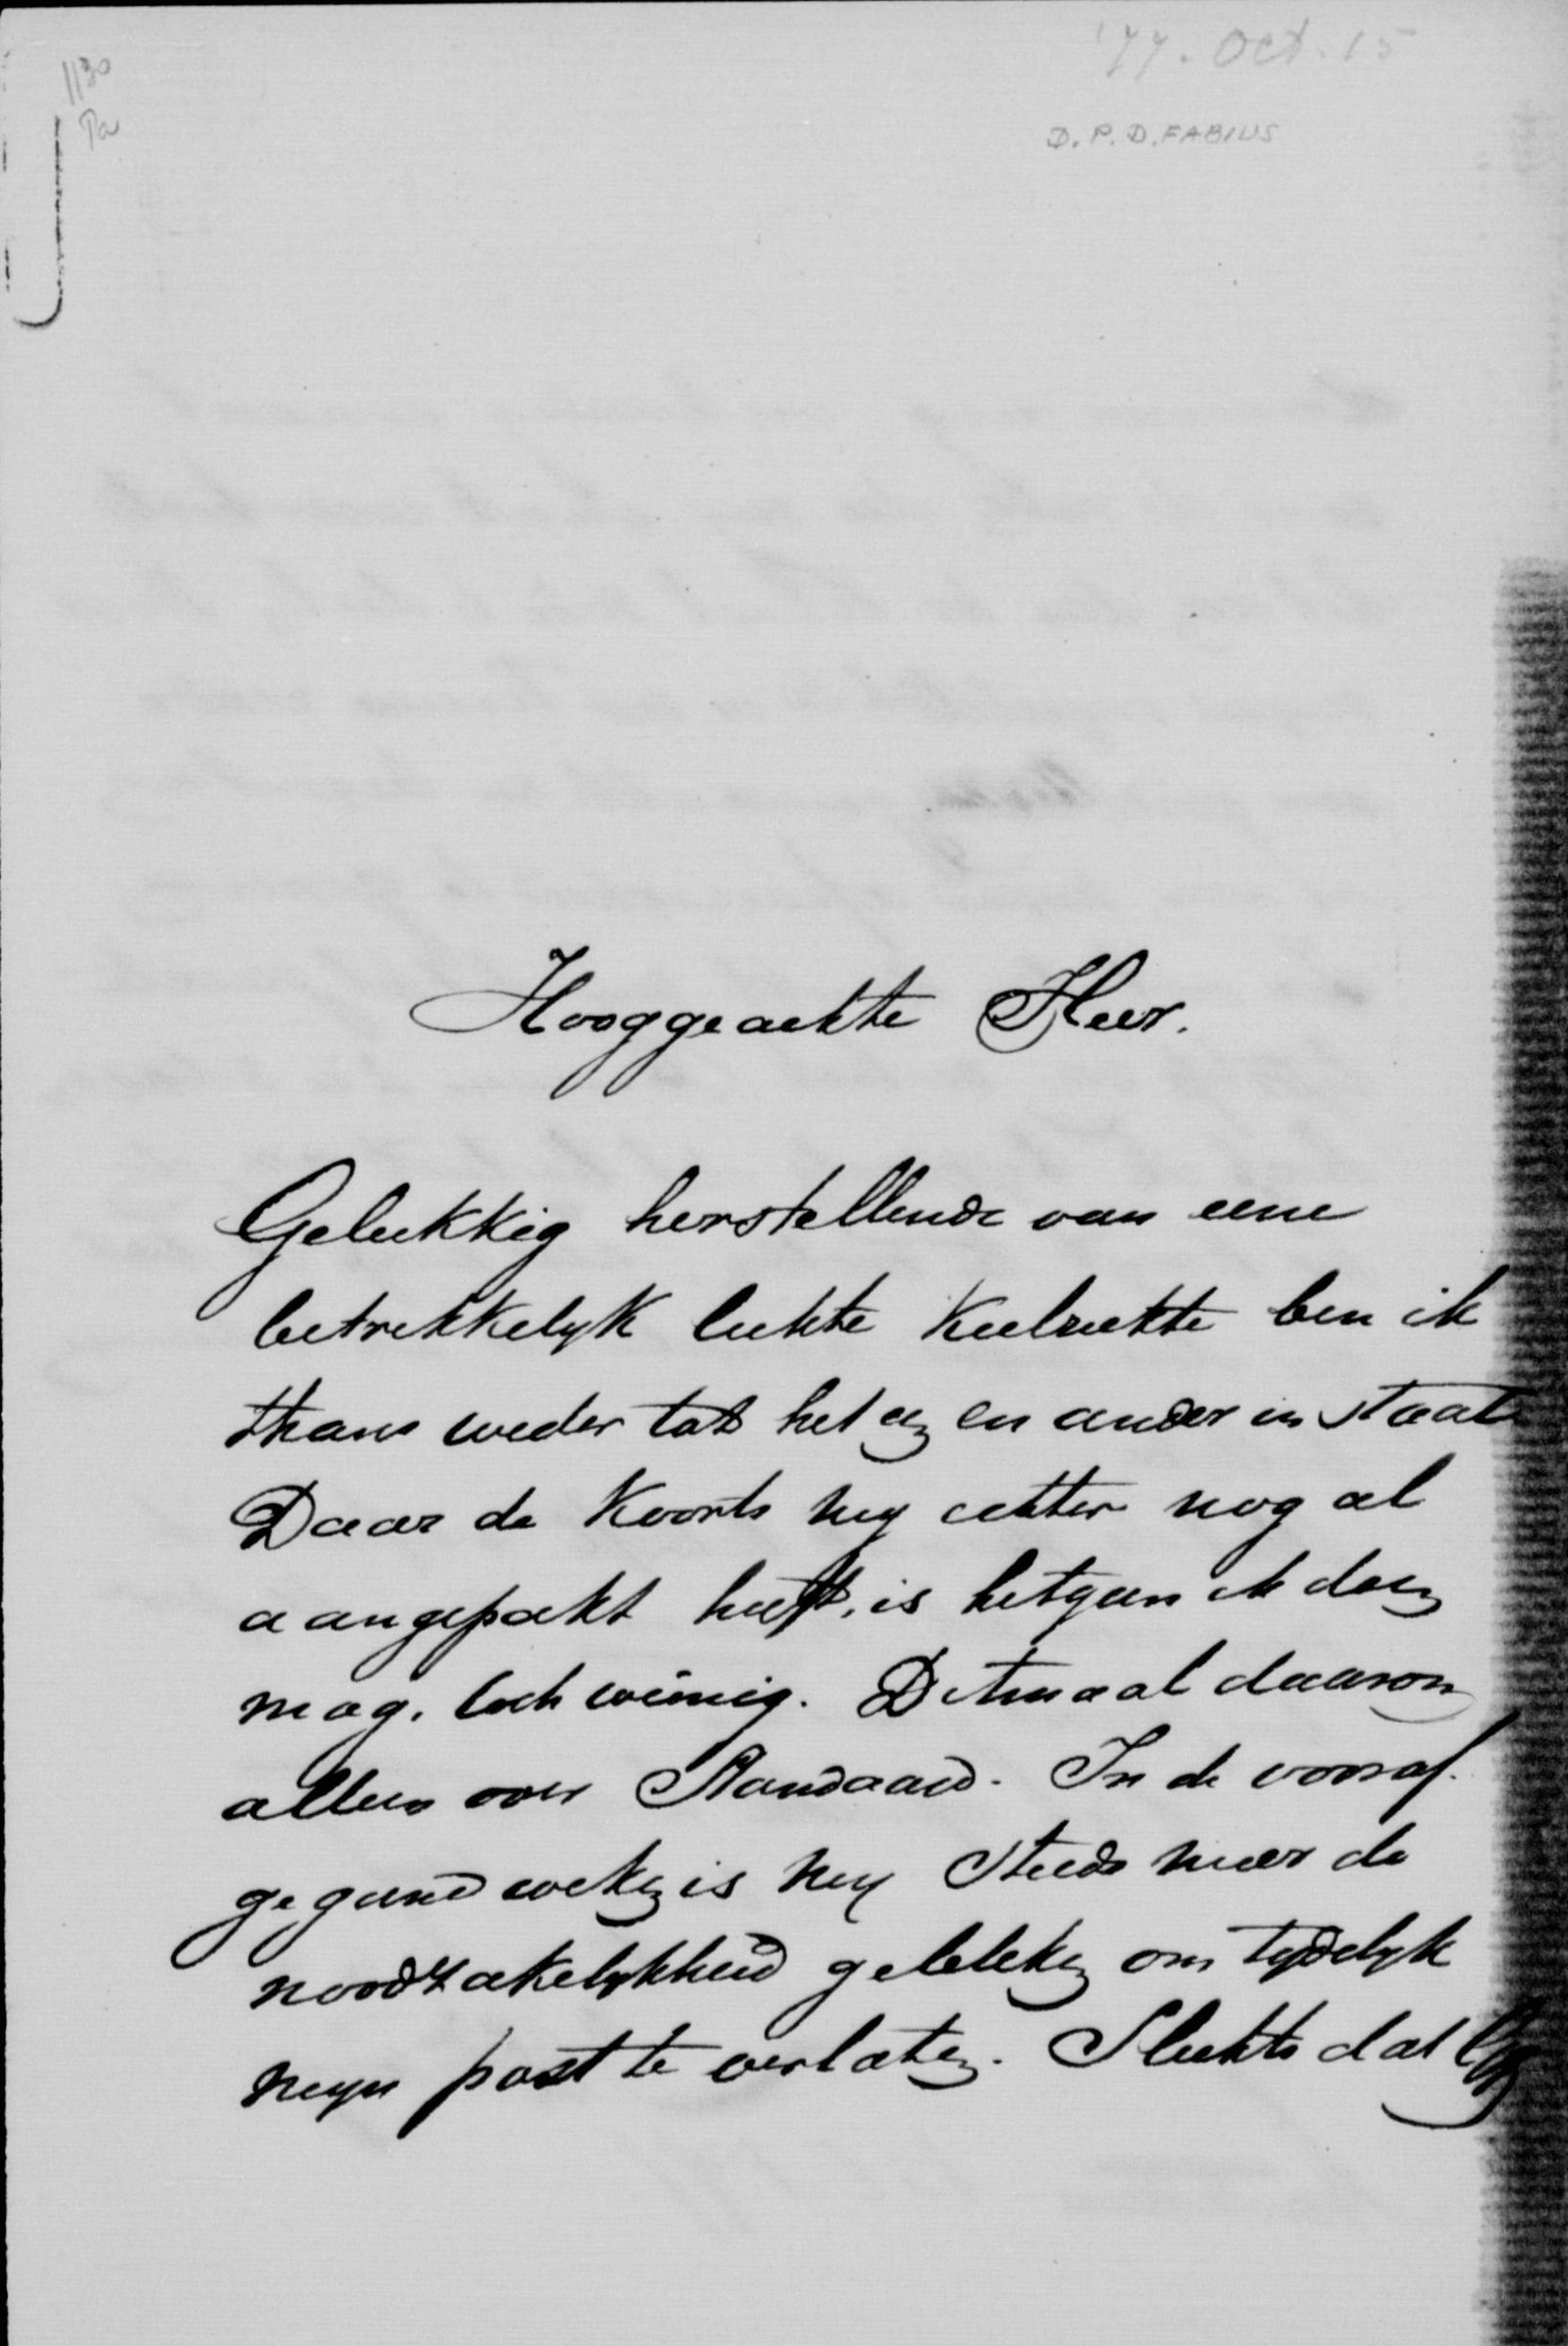 '77. Oct. 15
1130
Pa
D. P. D. FABIUS
Hooggeachte Heer.
Gelukkig herstellende van eene
betrekkelyk lichte keelziekte ben ik
thans weder tot het een en ander in staat
Daar de Koorts my echter nog al
aangepakt heeft, is hetgeen ik doen
mag, toch weinig. Ditmaal daarom
alleen over Standaard. In de vooraf-
gegaande weken is my steeds meer de
noodzakelykheid gebleken om tydelyk
myn post te verlaten. Slechts dat